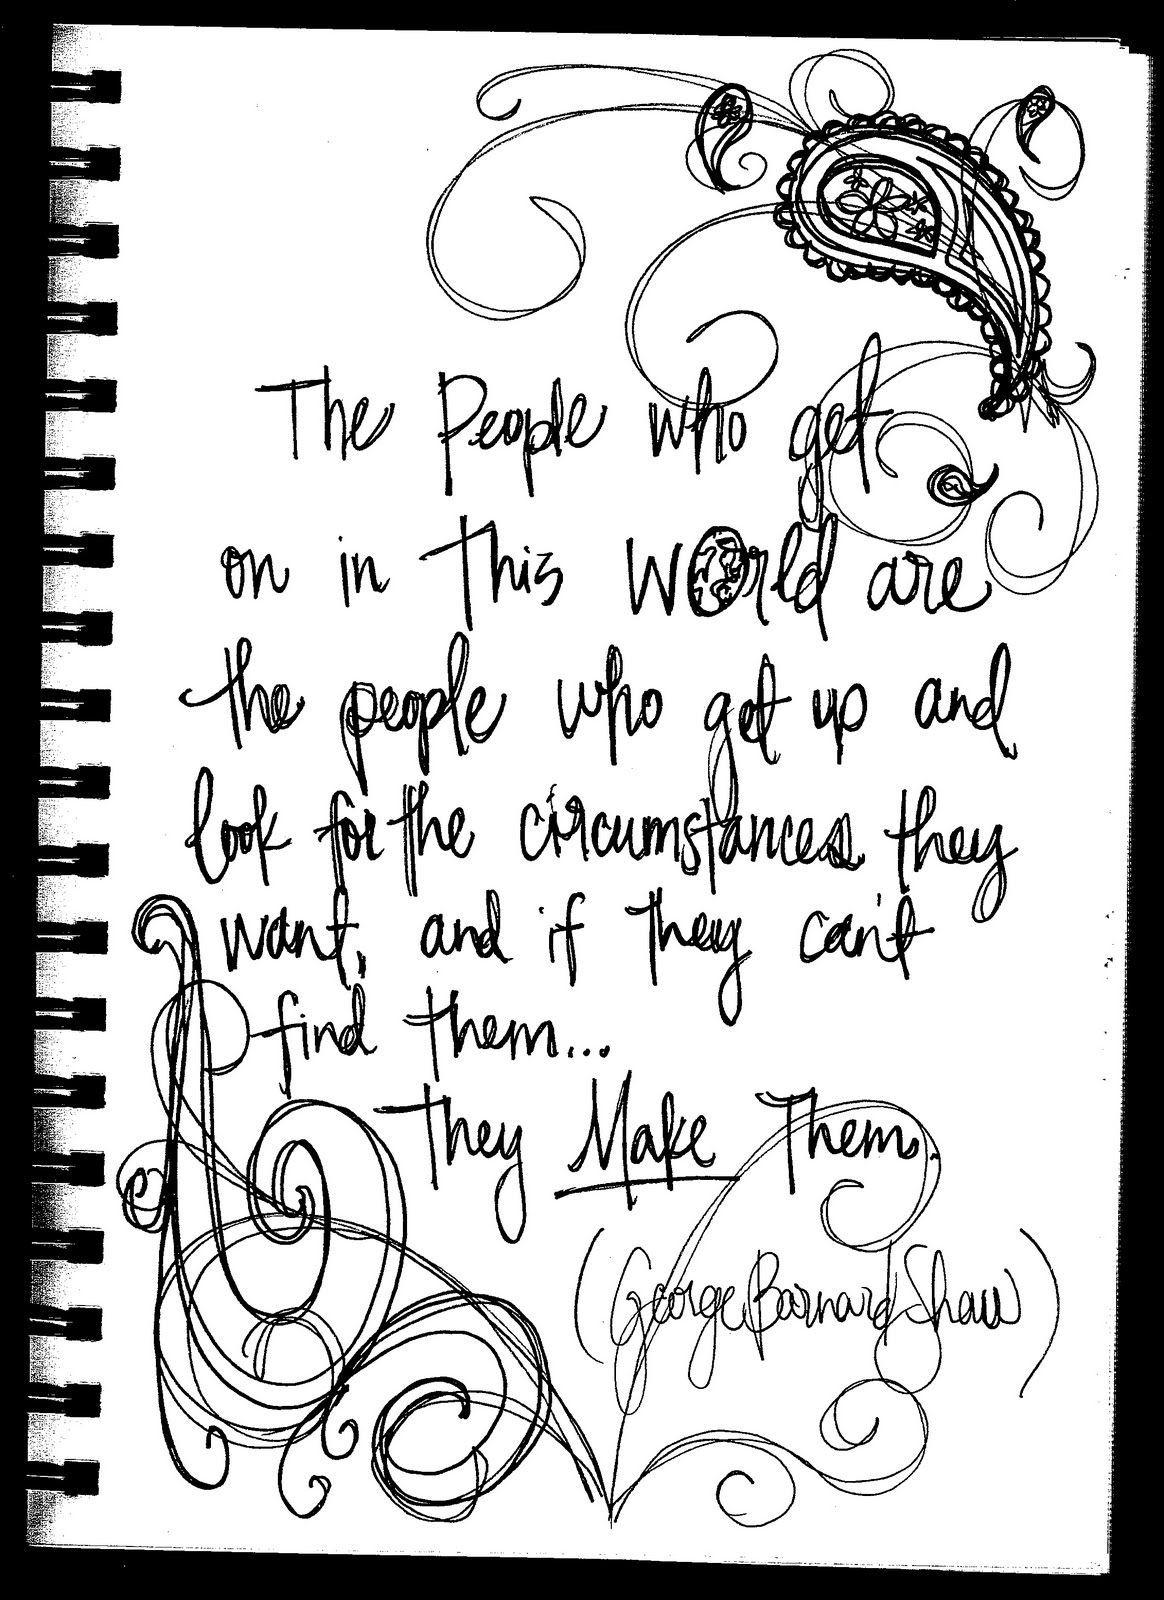 The People who get
on in this world are
the people who get up and
look for the circumstances they
want, and if they can't
find them...
They Make Them.
(George Barnard Shaw)